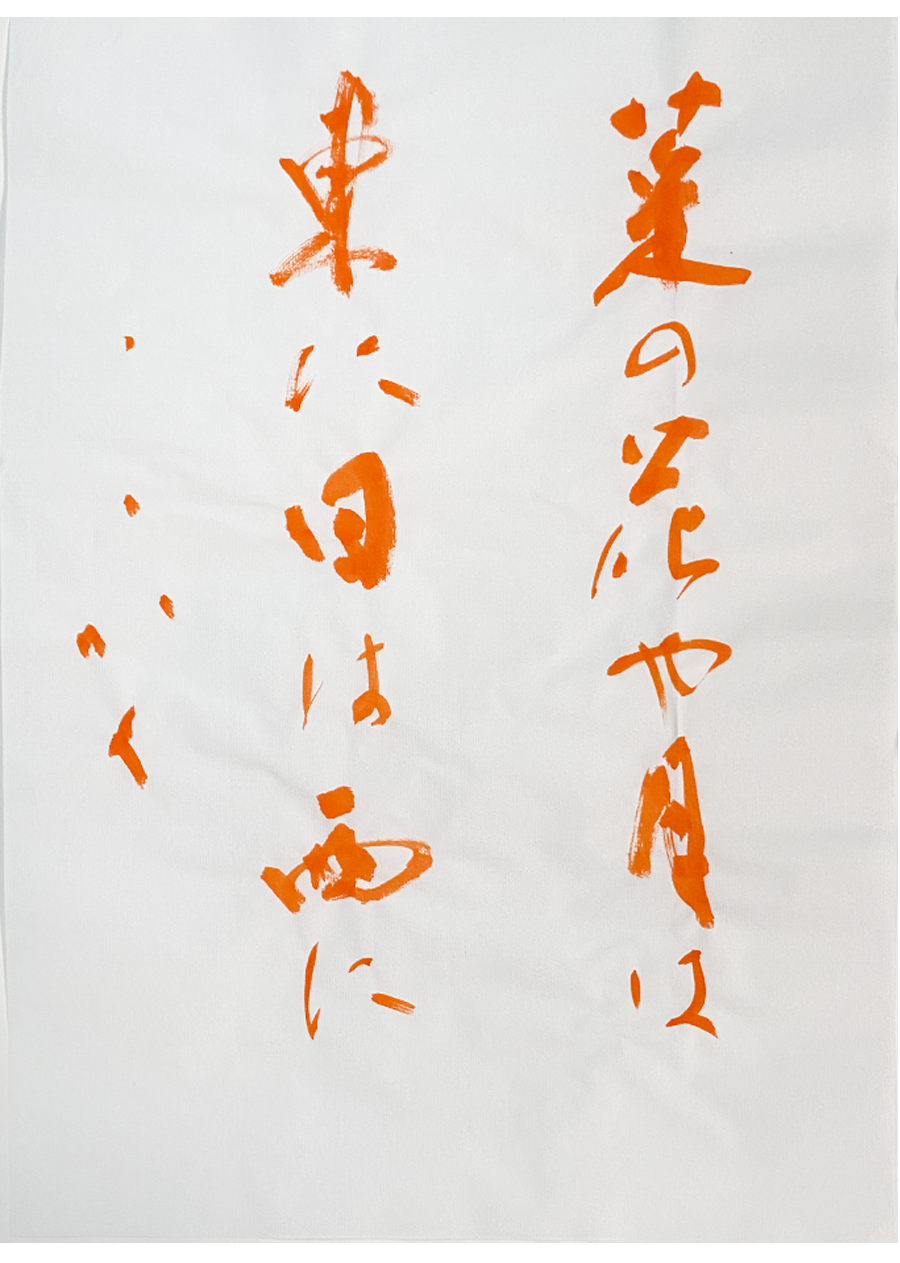 菜の花や月は
東に日は西に